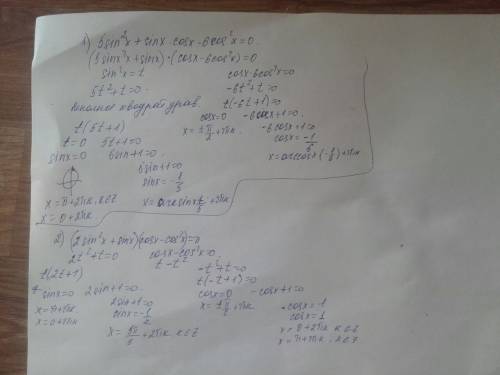 1) 5sin²x + sinx · cosx - 6cos²x = 0.
(5sinx²x + sinx) · (cosx - 6cos²x) = 0
sin²x = t cosx - 6cos²x = 0
5t² + t = 0. -6t² + t = 0
квадрат урав. t(-6t+1) = 0
t(5t+1) cosx = 0 -6cosx + 1 = 0.
t = 0 5t+1 = 0 x = ±π/2 + πк -6cosx + 1 = 0
sinx = 0 5sin+1 = 0. cosx = -1/6
5sin+1 = 0 x = arccosx(-1/6) + πк
sinx = -1/5
x = 0 + 2πк, к∈Z x = arcsinx 1/5 + πк
x = 0 + 2πк
2) (2sin²x + sinx)(cosx - cos²x) = 0
2t² + t = 0 cosx - cos²x = 0
t(2t+1) t - t² -t² + t = 0
t(-t+1) = 0
sinx = 0 2sin+1 = 0. cosx = 0 -cosx + 1 = 0
x = π + πк 2sin+1 = 0 -cosx = -1
x = 0 + πк sinx = -1/2 cosx = 1
+ 2πк к∈Z x = 0 + 2πк к∈Z
x = π + πк, к∈Z